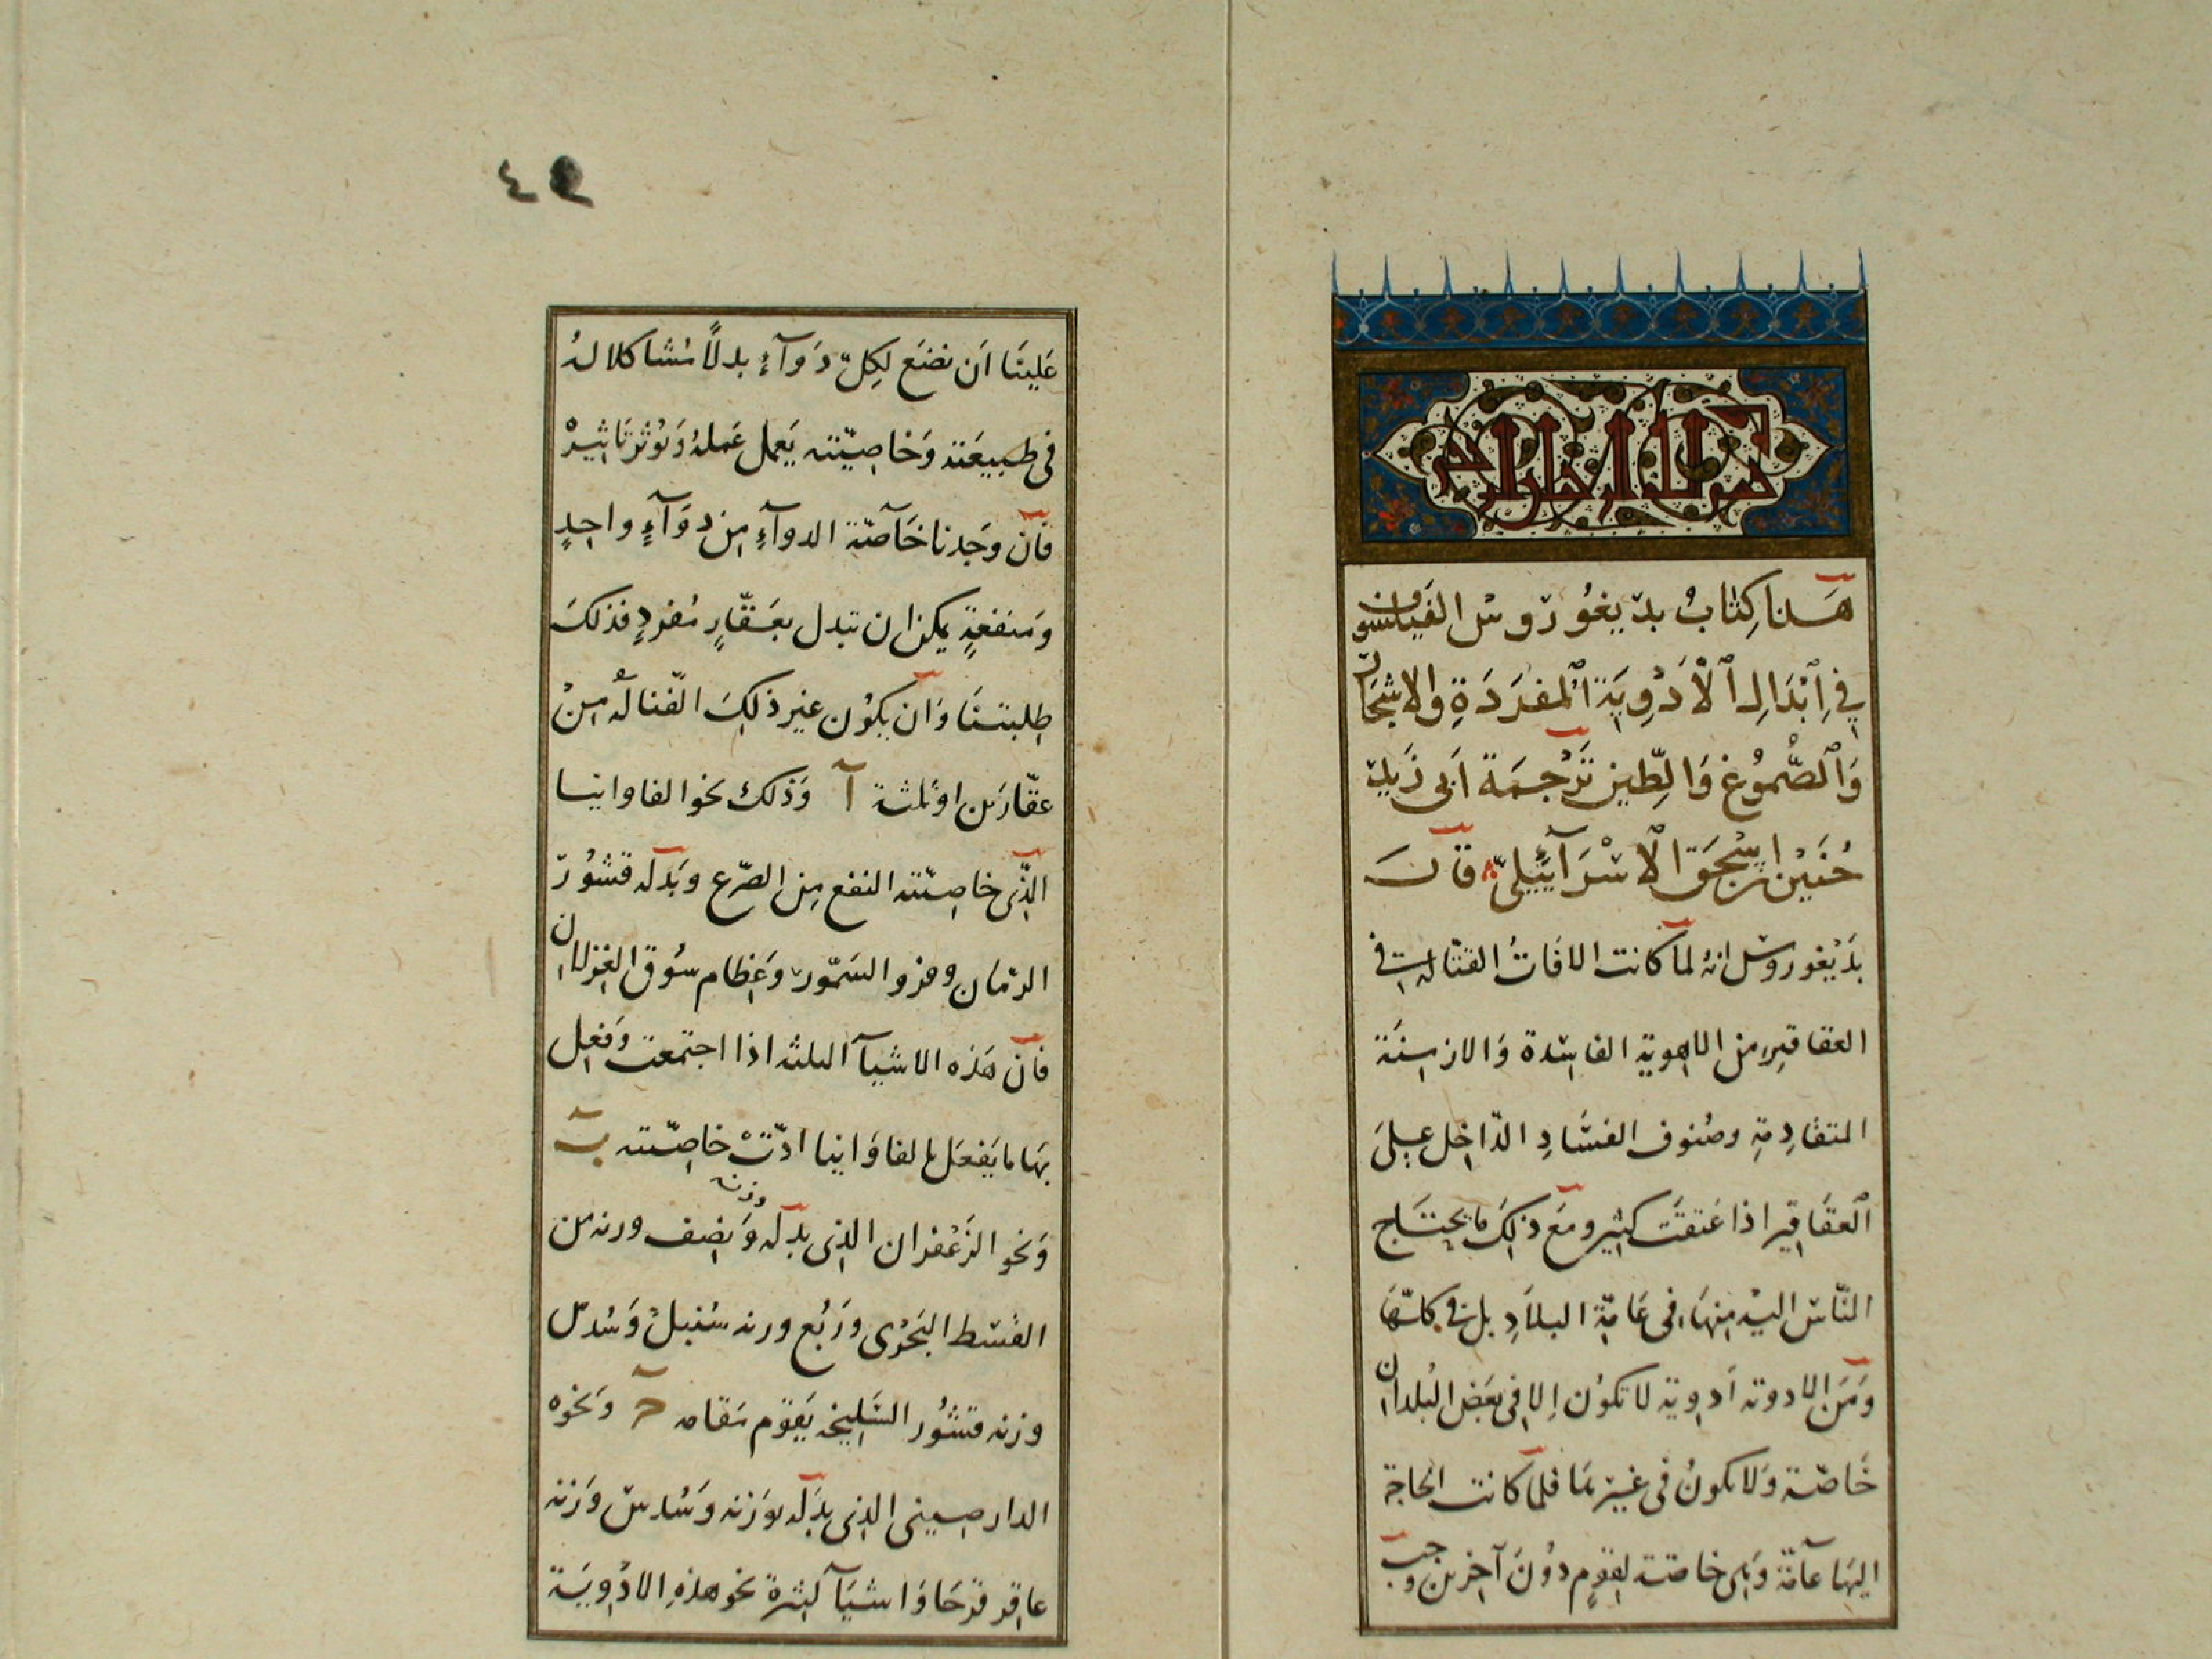 بسم الله الرحمن الرحيم
هذا كتاب بديغورس الفيلسوف
في ابدال الادوية المفردة والاشجار
والصموغ والطين ترجمة ابي زيد
حنين بن اسحق الاسرائيلي قال
بديغورس انه لما كانت الافات القتالة في
العقاقير من الاهوية الفاسدة والازمنة
المتقادمة وصنوف الفساد الداخل على
العقاقير اذا عتقت كثير ومع ذلك ما يحتاج
الناس اليه منها في عامة البلاد بل في كلها
ومن الادوية ادوية لا تكون الا في بعض البلدان
خاصة ولا تكون في غيرها فلما كانت الحاجة
اليها عامة وهي خاصة لقوم دون آخرين وجب
٤٩
علينا ان نضع لكل دوآء بدلا مشاكلا له
في طبيعته وخاصيته يعمل عمله ويوثر تاثيره
فان وجدنا خاصة الدوآء من دوآء واحد
ومنفعة يمكن ان تبدل بعقار مفرد فذلك
طلبتنا وان يكون غير ذلك الفنا له من
عقارين او ثلثة آ وذلك نحو الفاوانيا
الذي خاصيته النفع من الصرع وبدله قشور
الرمان وفرو السمور وعظام سوق الغزلان
فان هذه الاشيآ الثلثه اذا اجتمعت وفعل
بها ما يفعل بالفاوانيا ادت خاصيته ب
ونحو الزعفران الذي بدله وزنه ونصف وزنه من
القسط البحري وربع وزنه سنبل وسدس
وزنه قشور السليخه يقوم مقامه ج ونحوه
الدارصيني الذي بدله بوزنه وسدس وزنه
عاقرقرحا واشيآ كثيرة نحو هذه الادوية